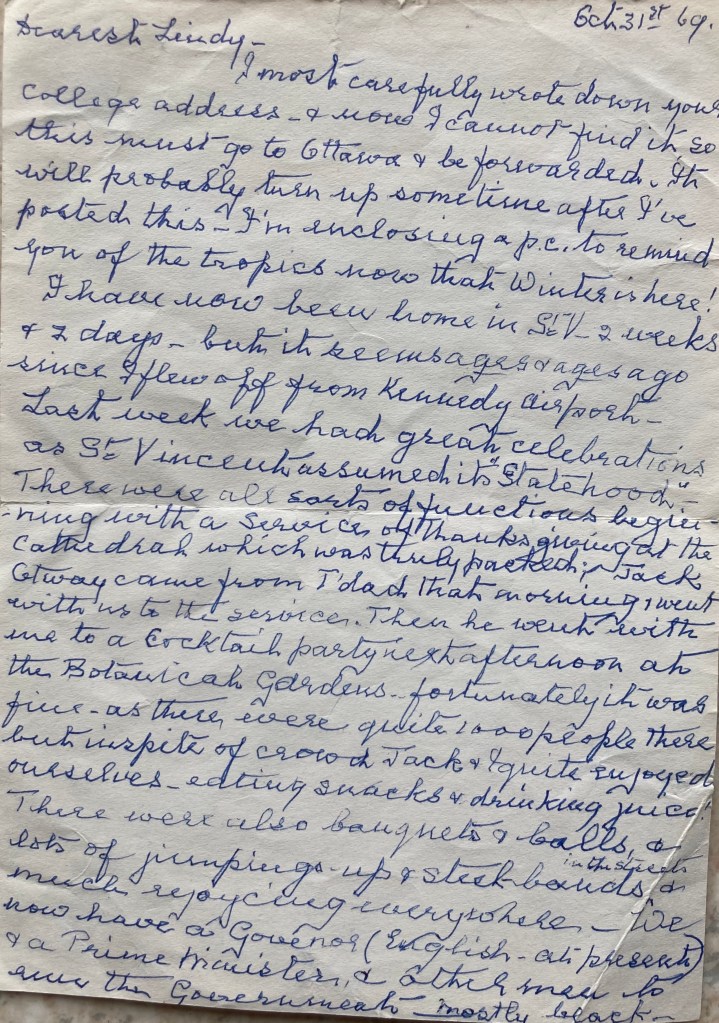 Oct 31st 69.
Dearest Lindy –
I most carefully wrote down your
college address – & now I cannot find it so
this must go to Ottawa & be forwarded. It
will probably turn up sometime after I've
posted this – I'm enclosing a p.c. to remind
you of the tropics now that Winter is here!
I have now been home in St. V – 2 weeks
& 2 days – but it seems ages & ages ago
since I flew off from Kennedy airport –
Last week we had great celebrations
as St. Vincent assumed its "Statehood" –
There were all sorts of functions begin-
-ning with a Service of Thanksgiving at the
Cathedral which was truly packed; Jack
Otway came from T'dad that morning & went
with us to the service. Then he went with
me to a Cocktail party next afternoon at
the Botanical Gardens – fortunately it was
fine – as there were quite 1000 people there
but inspite of crowd Jack & I quite enjoyed
ourselves – eating snacks & drinking juice!
There were also banquets & balls, &
lots of jumping-up & steel bands in the streets &
much rejoycing everywhere – We
now have a Govenor (English – at present)
& a Prime Minister, & other men to
run the Government – mostly black –